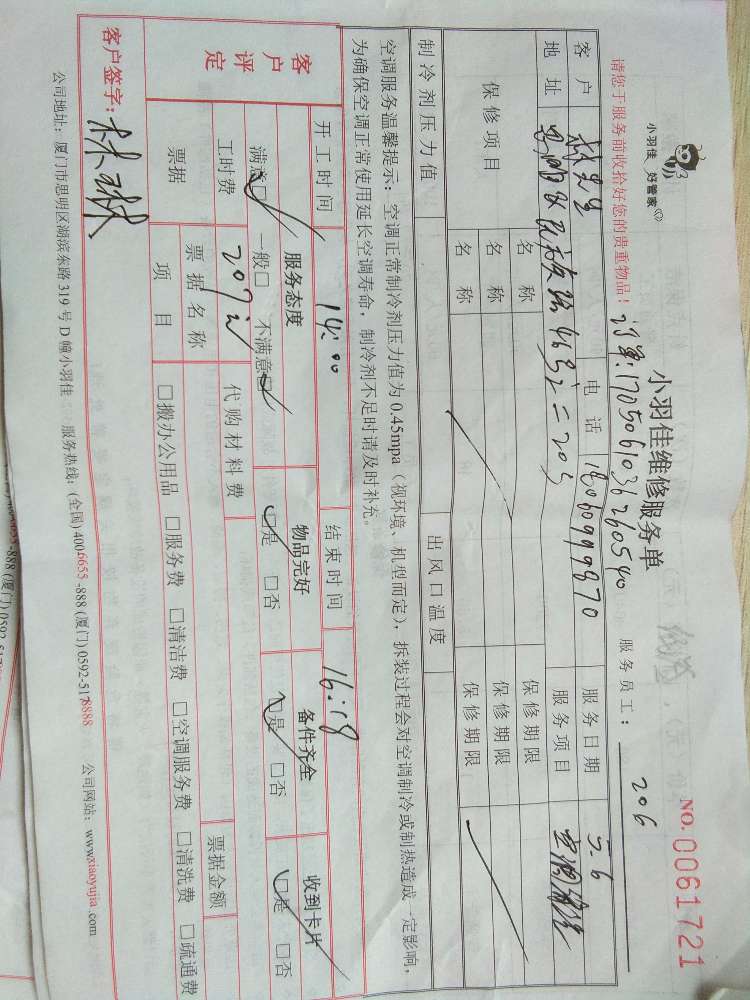 小羽佳 好管家
小羽佳维修服务单
NO. 0061721
请您于服务前收拾好您的贵重物品!
订单:1705061036260540
服务员工: 206
客户 林先生 电话 18060999870 服务日期 5.6
地址 服务项目 空调清洗
保修项目 名称 保修期限
名称 保修期限
名称 保修期限
制冷剂压力值 出风口温度
空调服务温馨提示:空调正常制冷剂压力值为0.45mpa(视环境、机型而定),拆装过程会对空调制冷或制热造成一定影响,
为确保空调正常使用延长空调寿命,制冷剂不足时请及时补充。
开工时间 14:00 结束时间 16:18
客户评定 服务态度 物品完好 备件齐全 收到卡片
满意□ 一般□ 不满意□ □是 □否 □是 □否 □是 □否
工时费 207元 代购材料费
票据 票据名称 票据金额
项目 □搬办公用品 □服务费 □清洁费 □空调服务费 □清洗费 □疏通费
客户签字:
公司地址:厦门市思明区湖滨东路319号D幢小羽佳 服务热线:(全国)4006655-888(厦门)0592-5178888 公司网站:www.xiaoyujia.com